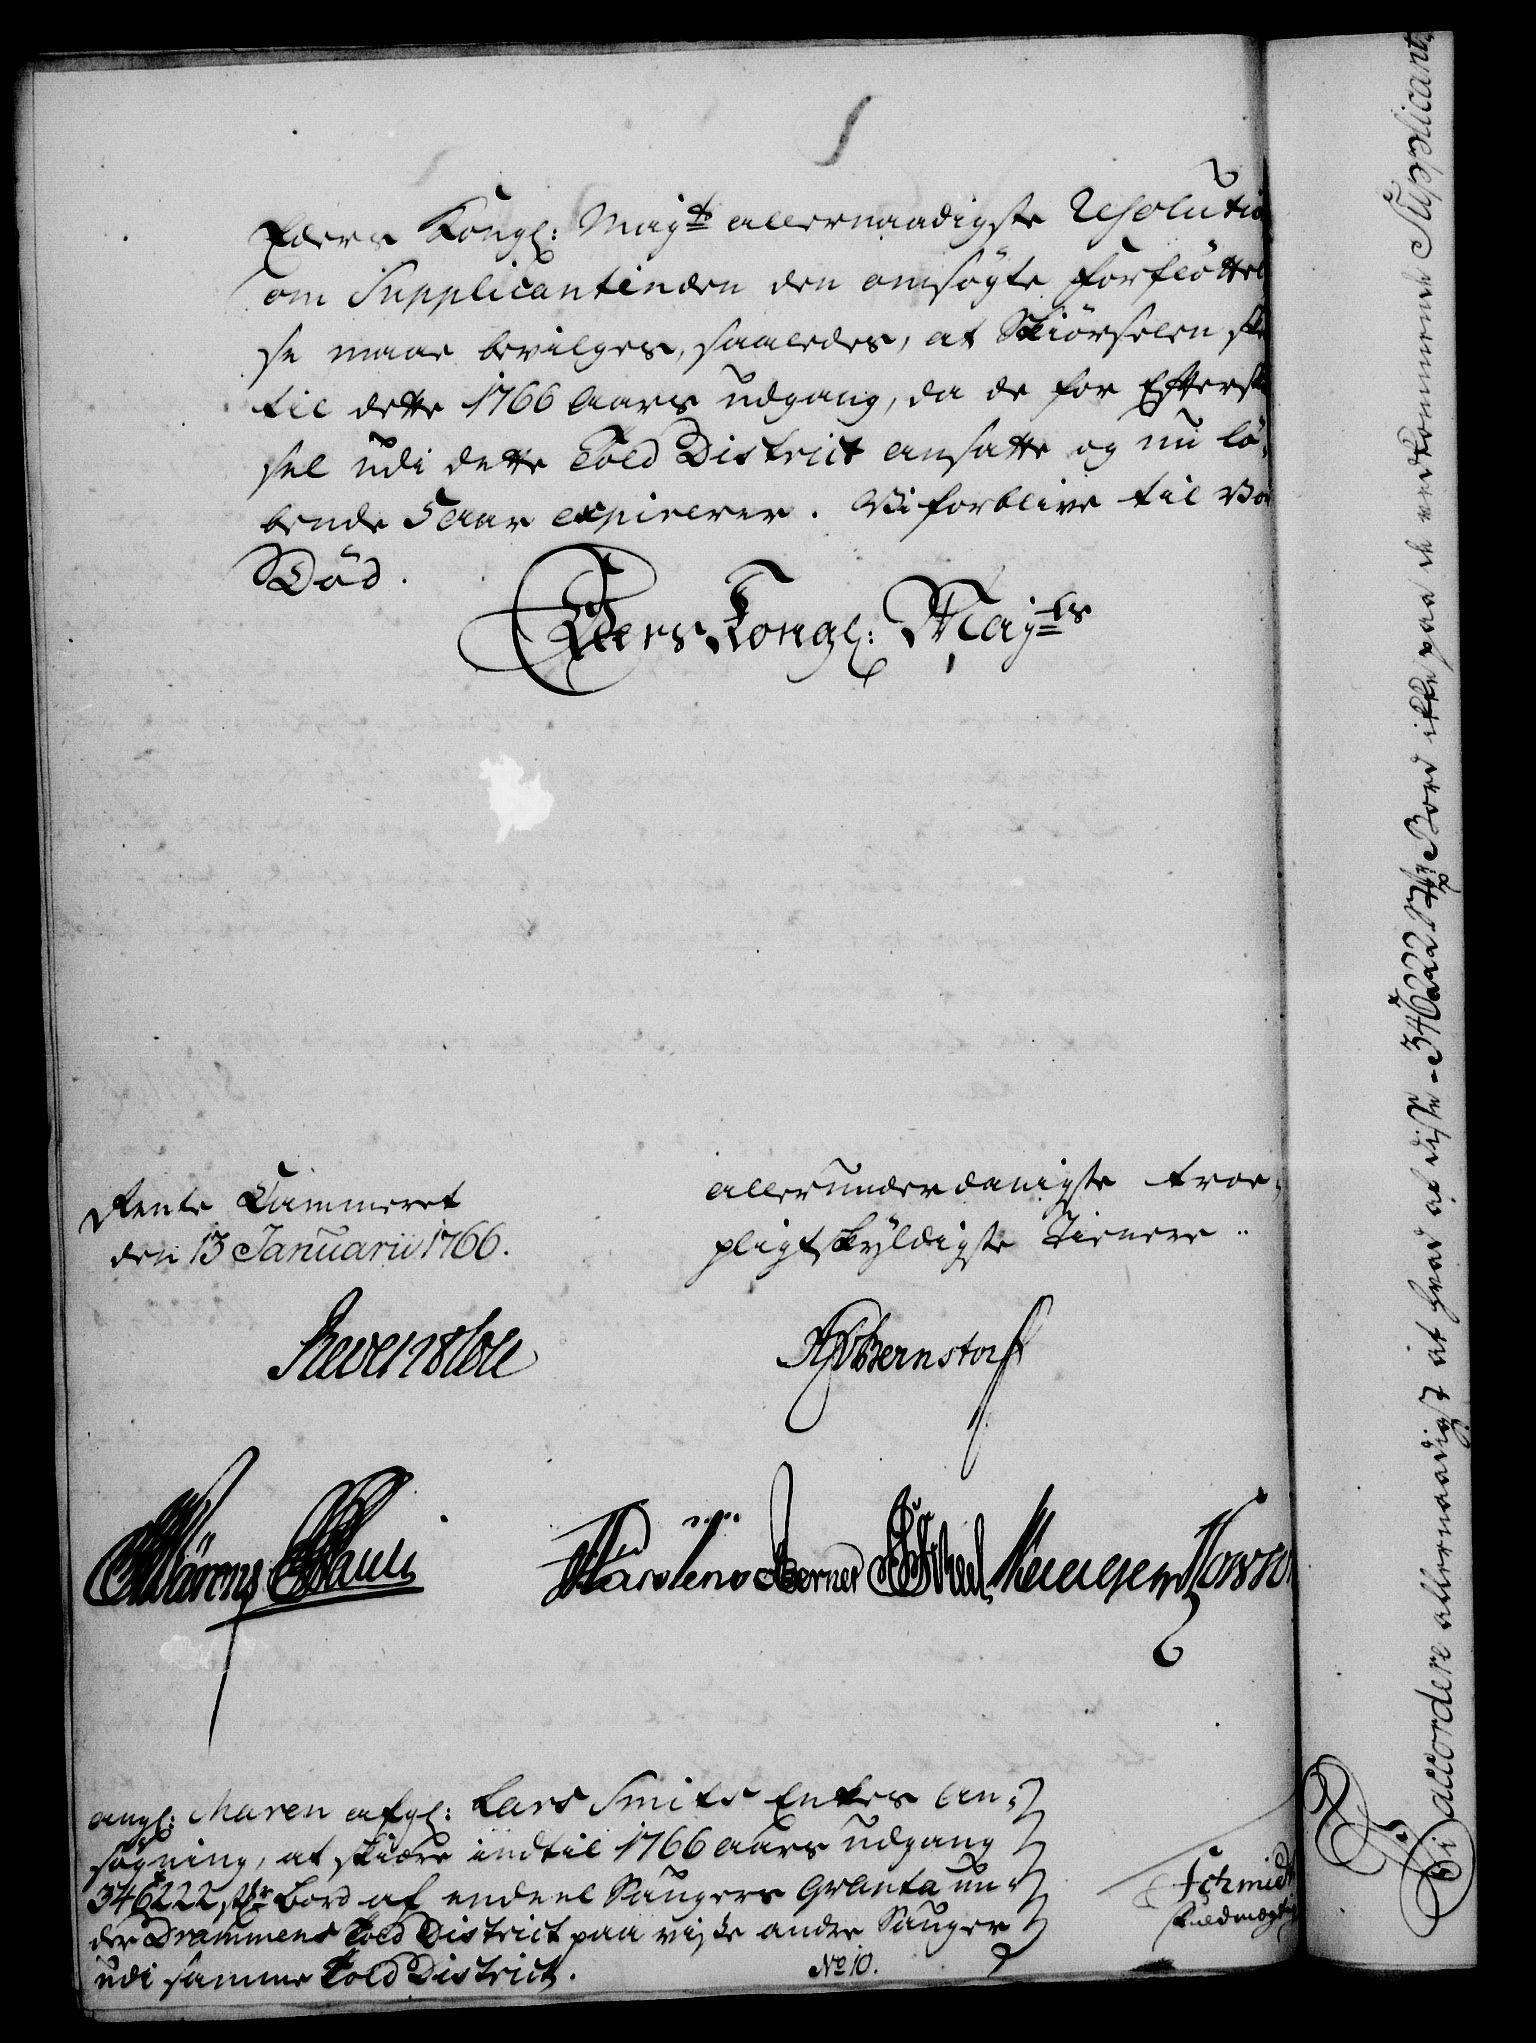 Eders Kongl: Mayts allernaadigste Resolutio
om Supplicantinden den ansögte forflöttel
se maae bevilges, saaledes, at Skiörselen skee
til dette 1766 Aars udgang, da de for Efterskiör
sel udi dette Told District ansatte og nu lö-
bende 5 Aar expirerer. Vi forblive til vor
Död.
Eders Kongl: Mayts
Rente Cammeret
den 13 Januarii 1766.
allerunderdanigste troe-
pligtskyldigste Tienere
Reventlow
AGVBernstorff
Märtens Pauli
Carstens Berner
angl: Maren afgl: Lars Smits Enkes An-
sögning, at skiære indtil 1766 aars udgang
346222 stkr Bord af endeel Saugers Qvanta un-
der Drammens Told District paa viste andre Sauger
udi samme Told District.
No 10.
Schmidt
Fuldmægtig
Vi accordere allernaadigst at hvad af disse 346222 Stkr Bord ikke paa de vedkommende Supplicant